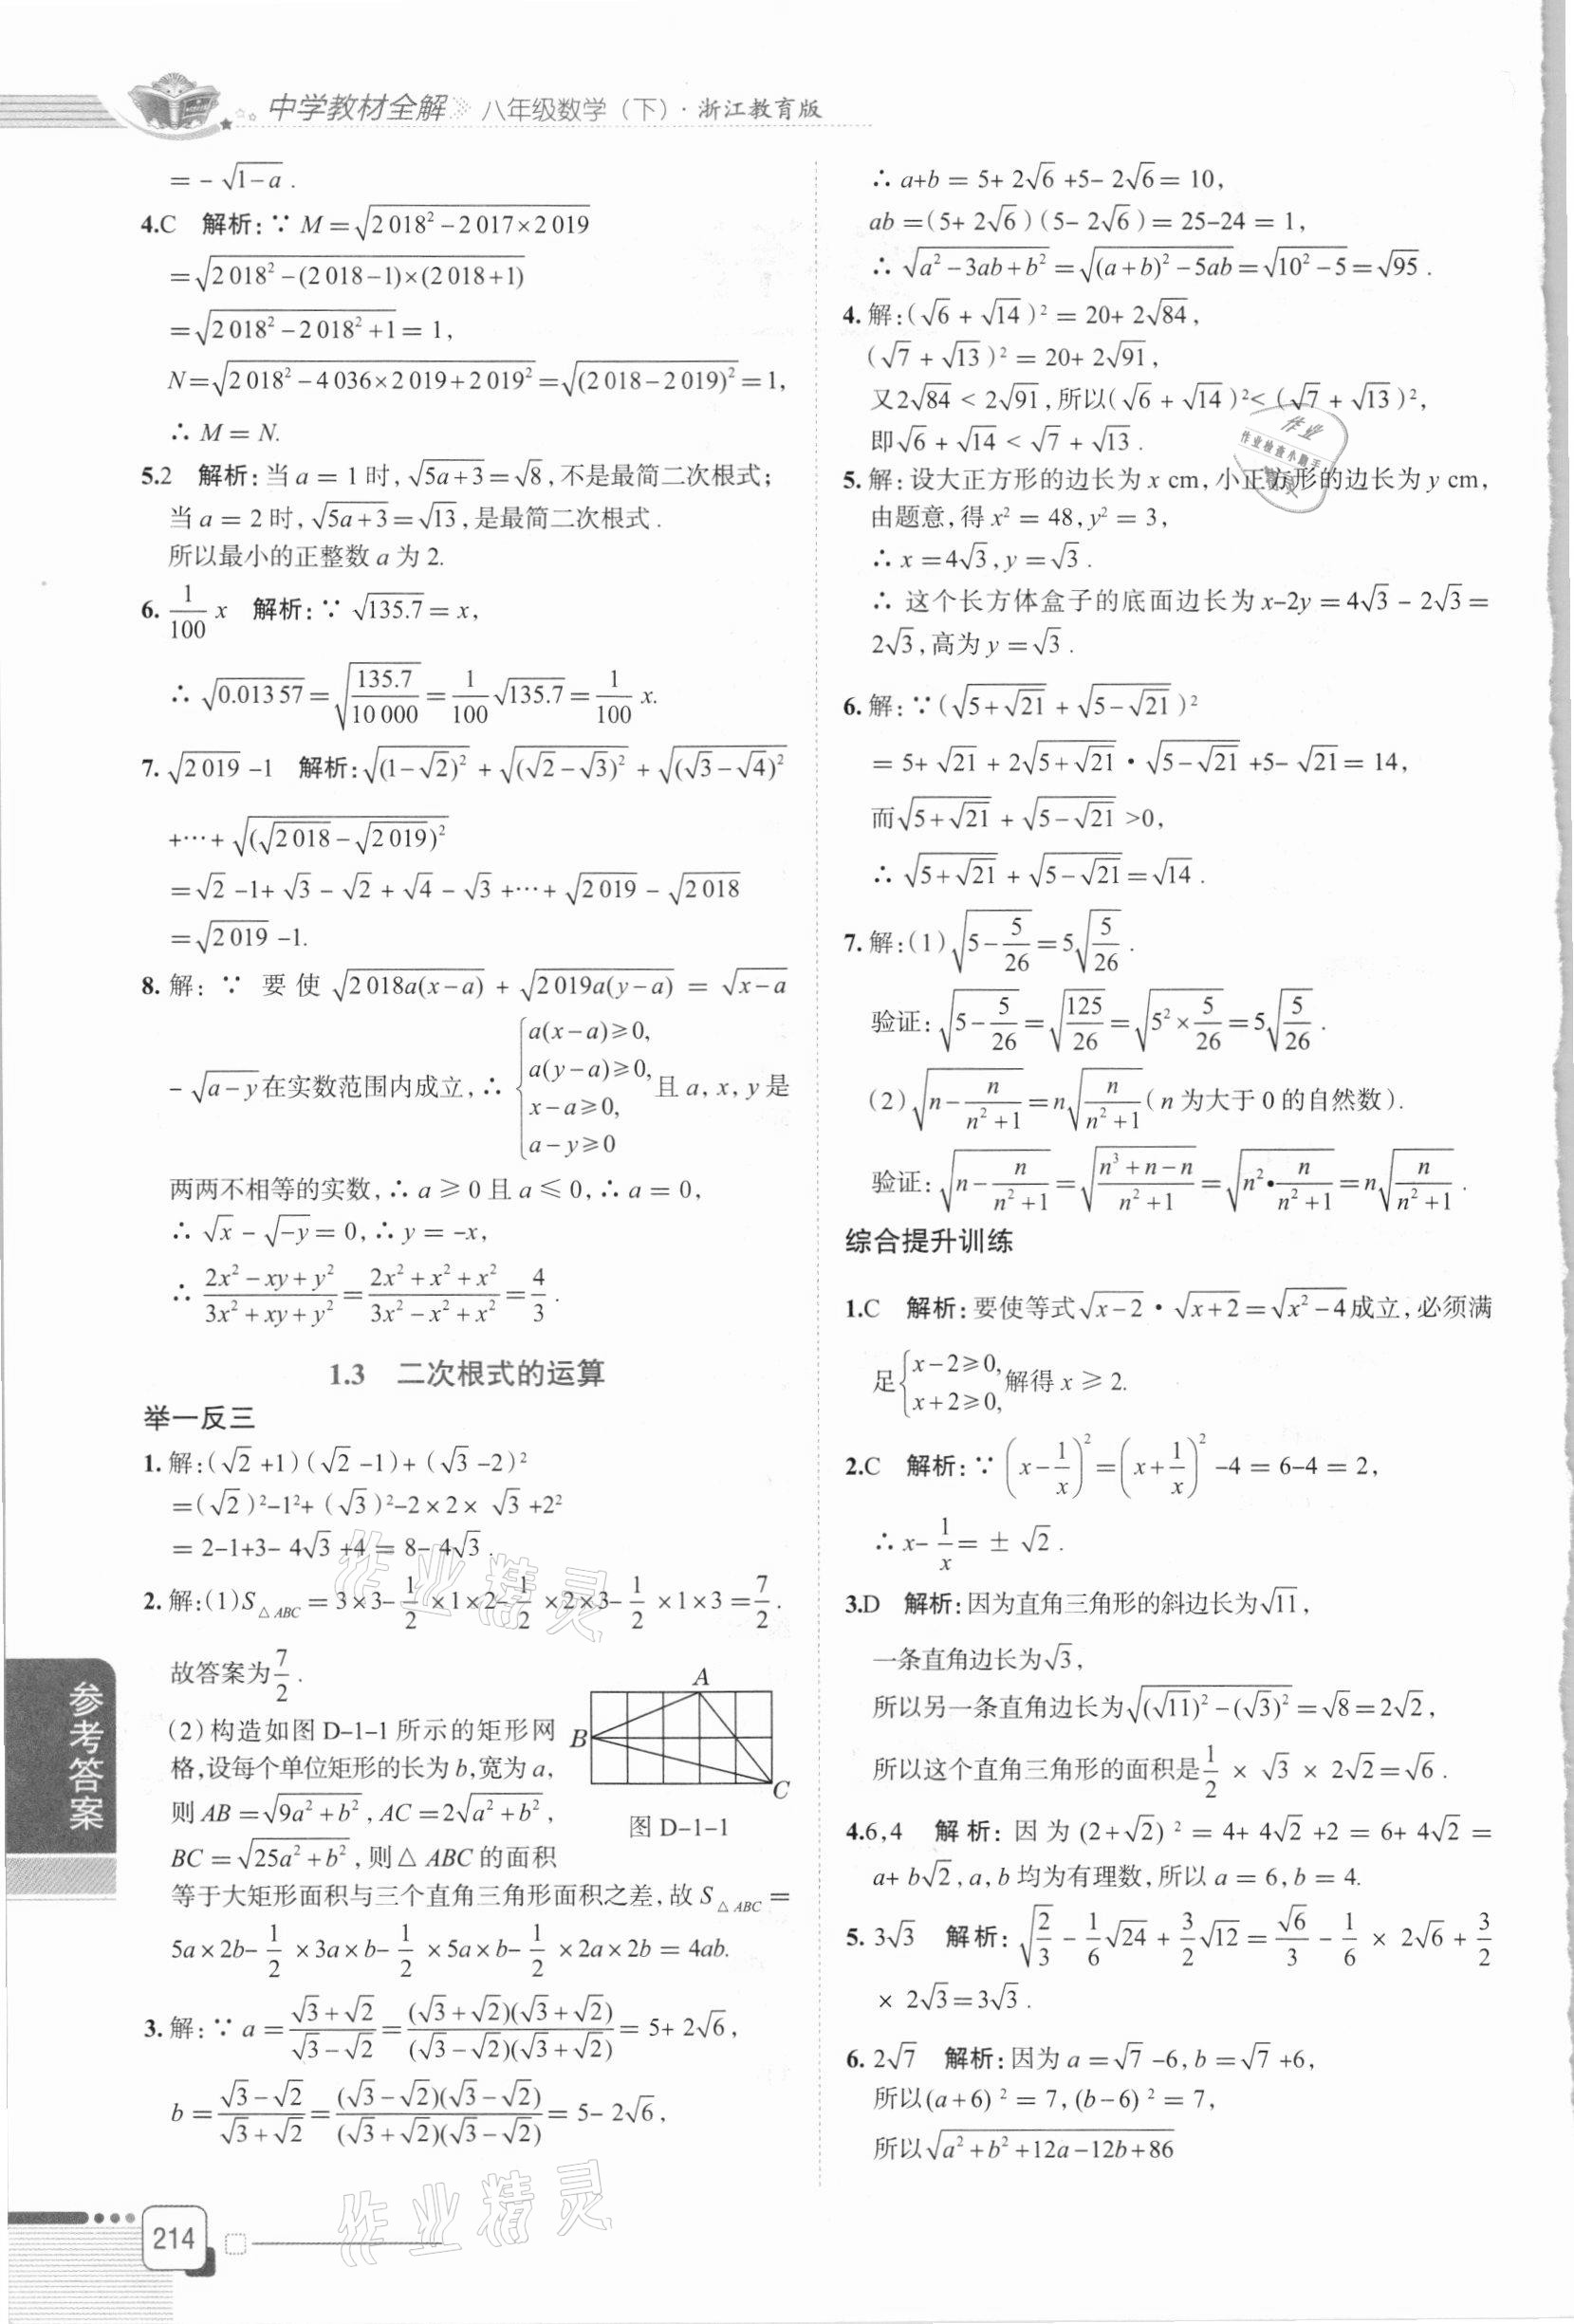 中学教材全解 八年级数学（下）·浙江教育版
= -√(1-a) .
4.C 解析：∵ M=√(2 018²-2 017×2 019)
=√(2 018²-(2 018-1)×(2 018+1))
=√(2 018²-2 018²+1) = 1,
N=√(2 018²-4 036×2 019+2 019²)=√((2 018-2 019)²)=1,
∴ M = N.
5.2 解析：当 a = 1 时, √(5a+3)=√8, 不是最简二次根式；
当 a = 2 时, √(5a+3)=√13, 是最简二次根式 .
所以最小的正整数 a 为 2.
6. 1/100 x 解析：∵ √135.7 = x,
∴ √0.013 57=√(135.7/10 000)=1/100 √135.7=1/100 x.
7. √2 019 -1 解析：√((1-√2)²) + √((√2-√3)²) + √((√3-√4)²)
+⋯+ √((√2 018-√2 019)²)
=√2 -1+ √3 - √2 + √4 - √3 +⋯+ √2 019 - √2 018
=√2 019 -1.
8. 解：∵ 要使 √(2 018a(x-a)) + √(2 019a(y-a)) = √(x-a)
-√(a-y) 在实数范围内成立, ∴ {a(x-a)≥0, a(y-a)≥0, x-a≥0, a-y≥0 且 a, x, y 是
两两不相等的实数, ∴ a ≥ 0 且 a ≤ 0, ∴ a = 0,
∴ √x - √(-y) = 0, ∴ y = -x,
∴ (2x²-xy+y²)/(3x²+xy+y²)=(2x²+x²+x²)/(3x²-x²+x²)=4/3 .
1.3 二次根式的运算
举一反三
1. 解：(√2 +1) (√2 -1)+ (√3 -2)²
=(√2)²-1²+ (√3)²-2×2× √3 +2²
= 2-1+3- 4√3 +4 = 8- 4√3 .
2. 解：(1)S△ABC = 3×3- 1/2 ×1×2- 1/2 ×2×3- 1/2 ×1×3 = 7/2 .
故答案为 7/2 .
(2) 构造如图 D-1-1 所示的矩形网
格, 设每个单位矩形的长为 b, 宽为 a,
则 AB =√(9a²+b²), AC = 2√(a²+b²),
BC =√(25a²+b²), 则 △ ABC 的面积
A
B
C
图 D-1-1
等于大矩形面积与三个直角三角形面积之差, 故 S△ABC =
5a×2b- 1/2 ×3a×b- 1/2 ×5a×b- 1/2 ×2a×2b = 4ab.
3. 解：∵ a=(√3+√2)/(√3-√2)=((√3+√2)(√3+√2))/((√3-√2)(√3+√2))= 5+ 2√6,
b=(√3-√2)/(√3+√2)=((√3-√2)(√3-√2))/((√3+√2)(√3-√2))= 5- 2√6,
∴ a+b = 5+ 2√6 +5- 2√6 = 10,
ab = (5+ 2√6) (5- 2√6) = 25-24 = 1,
∴ √(a²-3ab+b²)=√((a+b)²-5ab)=√(10²-5)=√95 .
4. 解：(√6 + √14)² = 20+ 2√84,
(√7 + √13)² = 20+ 2√91,
又2√84 < 2√91, 所以(√6 + √14)²< (√7 + √13)²,
即√6 + √14 < √7 + √13 .
5. 解：设大正方形的边长为 x cm, 小正方形的边长为 y cm,
由题意, 得 x² = 48, y² = 3,
∴ x = 4√3, y = √3 .
∴ 这个长方体盒子的底面边长为 x-2y = 4√3 - 2√3 =
2√3, 高为 y = √3 .
6. 解：∵ (√(5+√21) + √(5-√21))²
= 5+ √21 + 2√(5+√21) · √(5-√21) +5- √21 = 14,
而√(5+√21) + √(5-√21) >0,
∴ √(5+√21) + √(5-√21)=√14 .
7. 解：(1)√(5-5/26)=5√(5/26) .
验证：√(5-5/26)=√(125/26)=√(5²×5/26)=5√(5/26) .
(2)√(n-n/(n²+1))=n√(n/(n²+1)) (n 为大于 0 的自然数).
验证：√(n-n/(n²+1))=√((n³+n-n)/(n²+1))=√(n²·n/(n²+1))=n√(n/(n²+1)) .
综合提升训练
1.C 解析：要使等式√(x-2) · √(x+2)=√(x²-4)成立, 必须满
足{x-2≥0, x+2≥0, 解得 x ≥ 2.
2.C 解析：∵ (x-1/x)²=(x+1/x)² -4 = 6-4 = 2,
∴ x- 1/x = ± √2 .
3.D 解析：因为直角三角形的斜边长为√11,
一条直角边长为√3,
所以另一条直角边长为√((√11)²-(√3)²)=√8=2√2,
所以这个直角三角形的面积是 1/2 × √3 × 2√2=√6 .
4.6,4 解析：因为 (2+√2)² = 4+ 4√2 +2 = 6+ 4√2 =
a+ b√2, a, b 均为有理数, 所以 a = 6, b = 4.
5. 3√3 解析：√(2/3) - 1/6 √24 + 3/2 √12 = √6/3 - 1/6 × 2√6 + 3/2
× 2√3=3√3 .
6. 2√7 解析：因为 a =√7 -6, b =√7 +6,
所以(a+6)² = 7, (b-6)² = 7,
所以√(a²+b²+12a-12b+86)
参考答案
214
作业精灵
作业精灵
作业
作业检查小助手